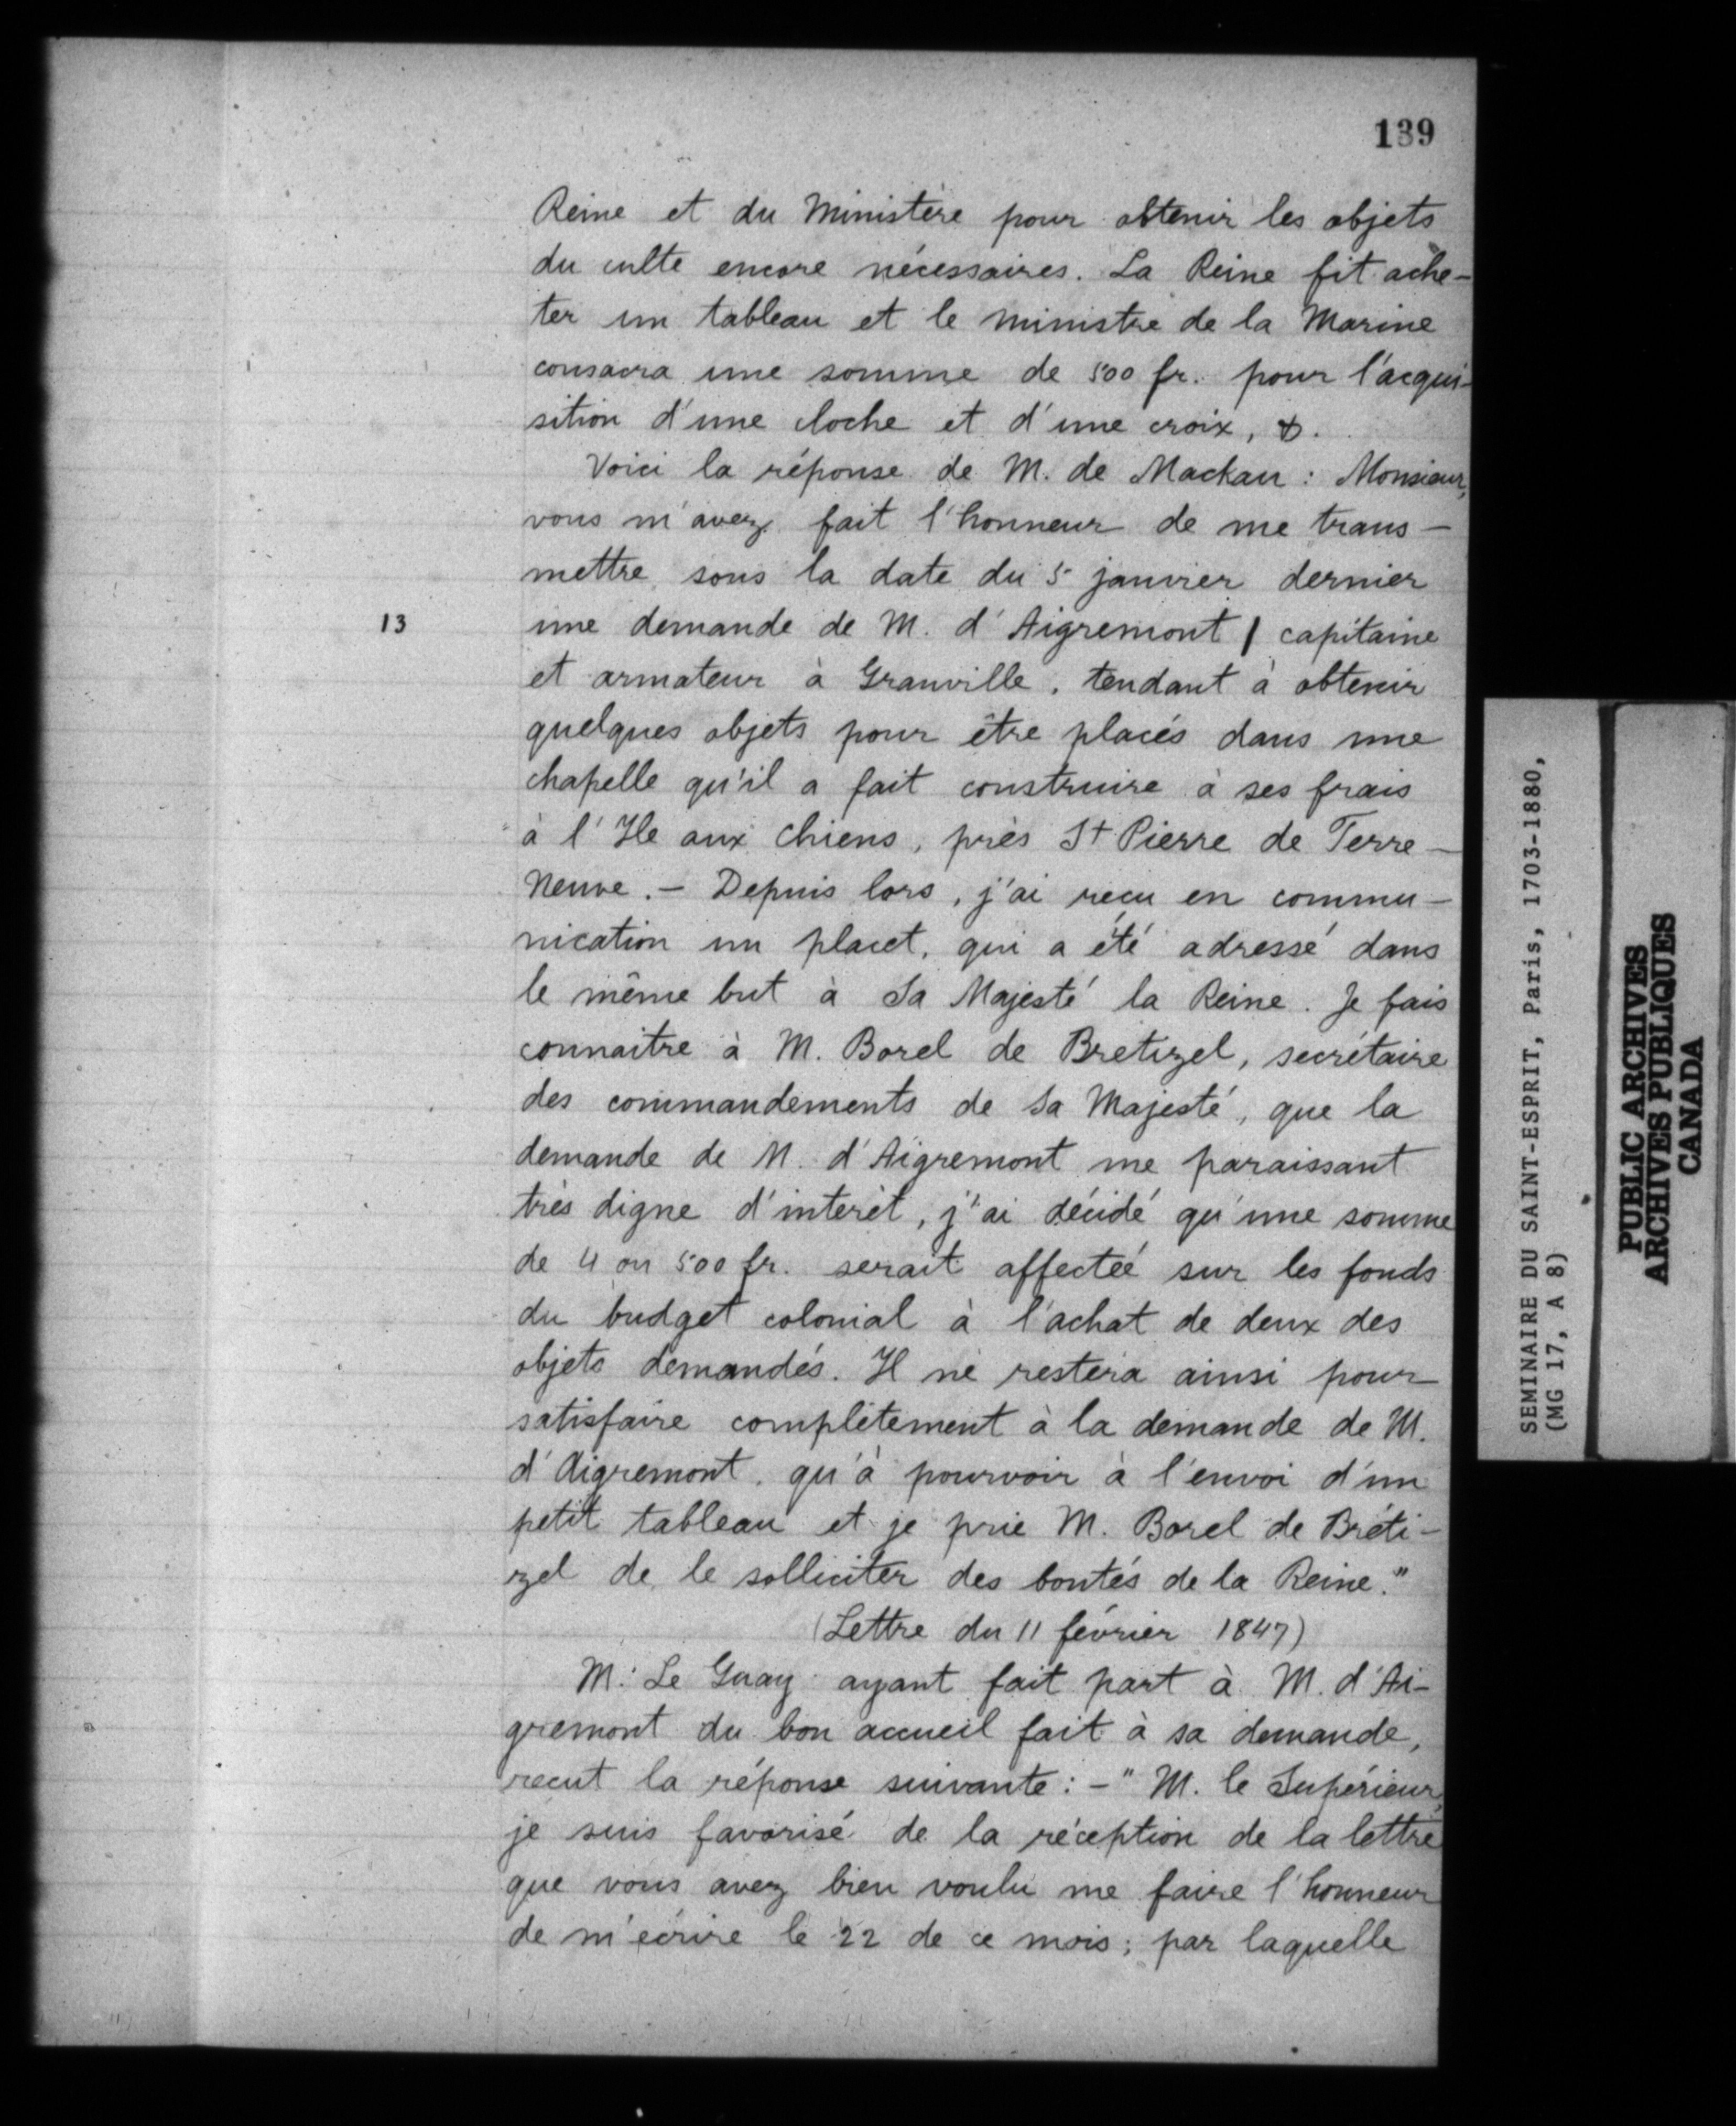 139
Reine et du Ministère pour obtenir les objets
du culte encore nécessaires. La Reine fit ache-
ter un tableau et le ministre de la Marine
consacra une somme de 500 fr. pour l'acqui-
sition d'une cloche et d'une croix, &.
Voici la réponse de M. de Mackau : Monsieur,
vous m'avez fait l'honneur de me trans-
mettre sous la date du 5 janvier dernier
13
une demande de M. d'Aigremont | capitaine
et armateur à Granville, tendant à obtenir
quelques objets pour être placés dans une
chapelle qu'il a fait construire à ses frais
à l'Ile aux Chiens, près St Pierre de Terre-
Neuve. - Depuis lors, j'ai reçu en commu-
nication un placet, qui a été adressé dans
le même but à Sa Majesté la Reine. Je fais
connaitre à M. Borel de Bretizel, secrétaire
des commandements de Sa Majesté, que la
demande de M. d'Aigremont me paraissant
très digne d'intérêt, j'ai décidé qu'une somme
de 4 ou 500 fr. serait affectée sur les fonds
du budget colonial à l'achat de deux des
objets demandés. Il ne restera ainsi pour
satisfaire complètement à la demande de M.
d'Aigremont, qu'à pourvoir à l'envoi d'un
petit tableau et je prie M. Borel de Bréti-
zel de le solliciter des bontés de la Reine."
(Lettre du 11 février 1847)
M. Le Guay ayant fait part à M. d'Ai-
gremont du bon accueil fait à sa demande,
recut la réponse suivante : - " M. le Supérieur,
je suis favorisé de la réception de la lettre
que vous avez bien voulu me faire l'honneur
de m'écrire le 22 de ce mois; par laquelle
SEMINAIRE DU SAINT-ESPRIT, Paris, 1703-1880,
(MG 17, A 8)
PUBLIC ARCHIVES
ARCHIVES PUBLIQUES
CANADA